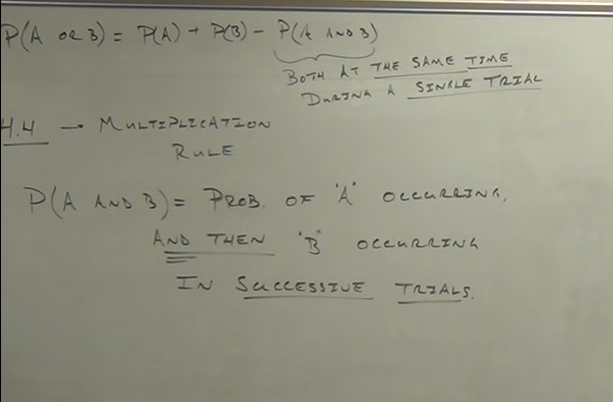 P(A OR B) = P(A) + P(B) - P(A AND B)
BOTH AT THE SAME TIME
DURING A SINGLE TRIAL
4.4 - MULTIPLICATION
RULE
P(A AND B) = PROB. OF "A" OCCURRING,
AND THEN "B" OCCURRING
IN SUCCESSIVE TRIALS.